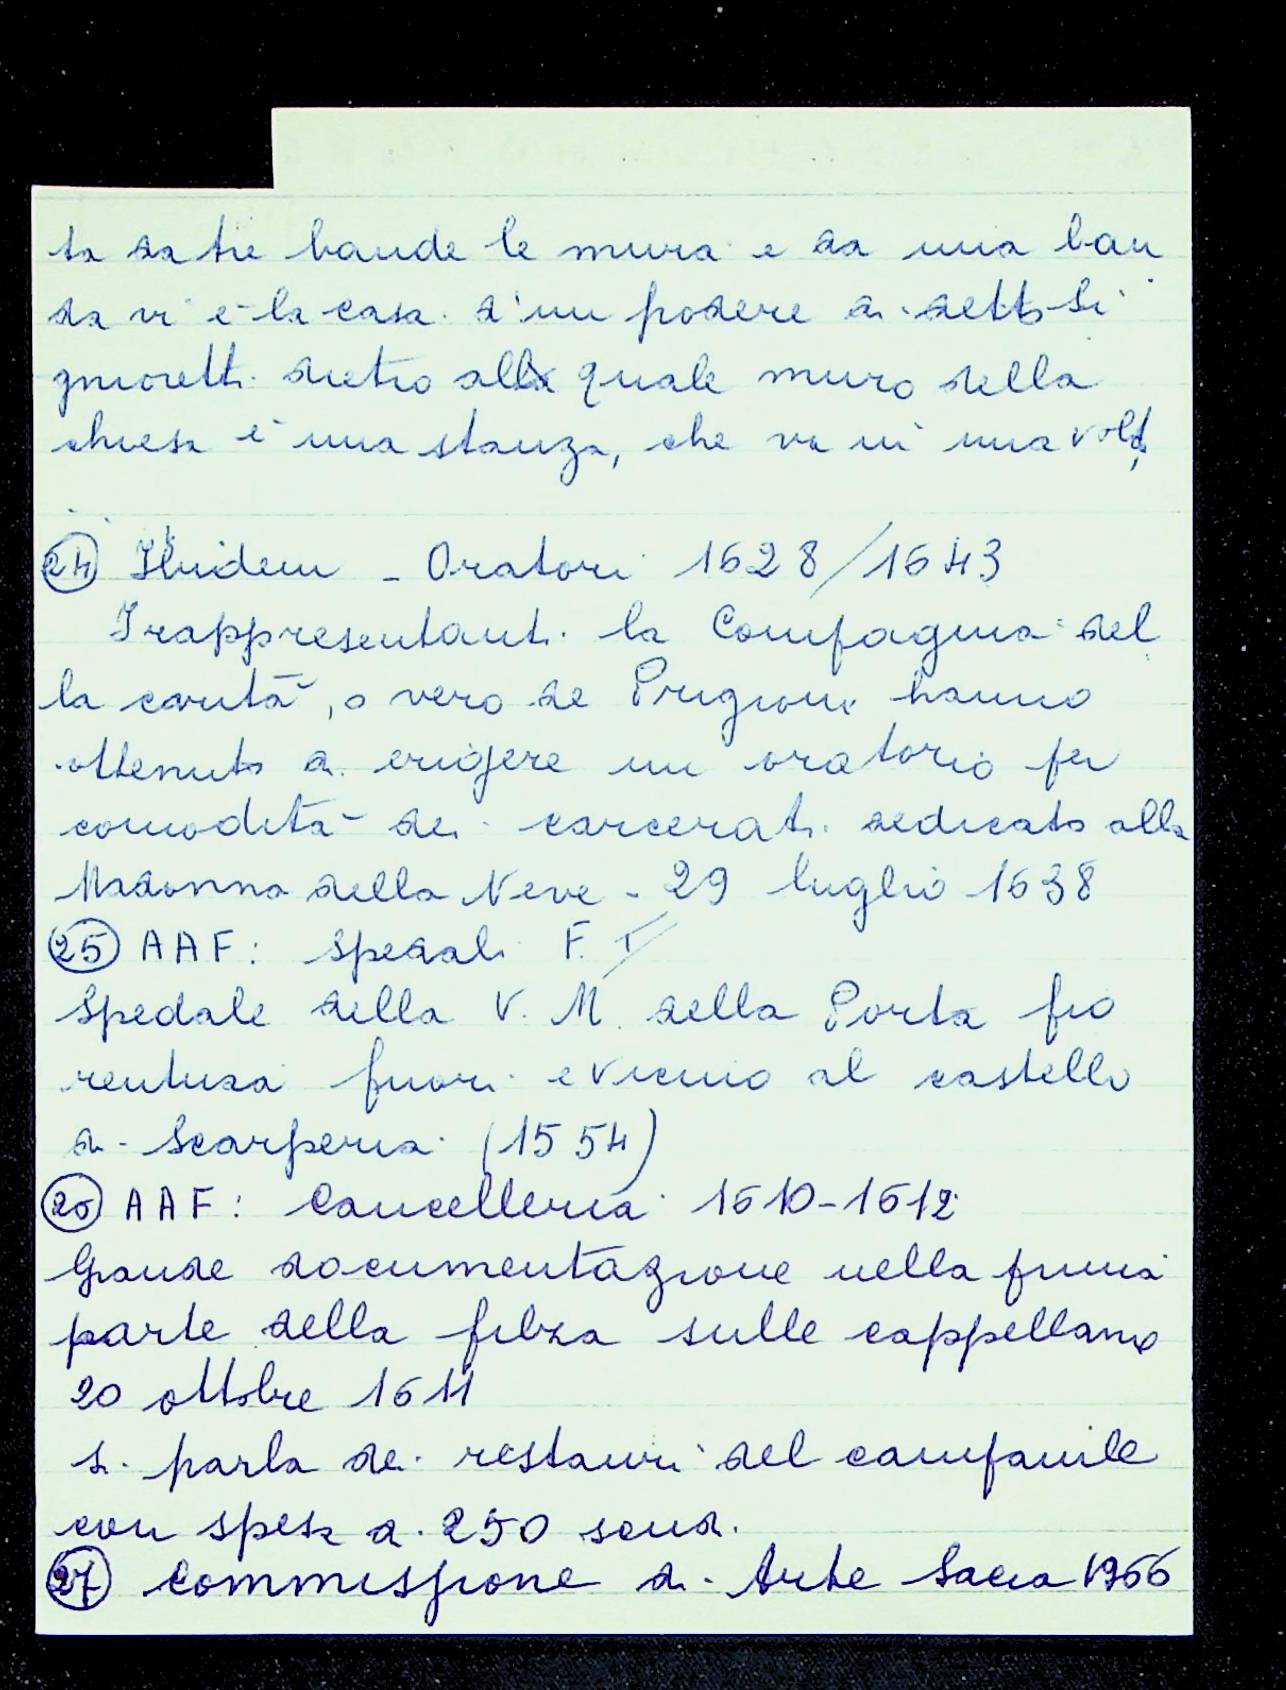 ta da tre bande le mura e da una ban
da vi è la casa d'un podere di detto Si
gnoretti dietro alla quale muro della
chiesa è una stanza, che va in una volta,
24 Ibidem - Oratori 1628/1643
I rappresentanti la Compagnia del
la carità, o vero de Prigioni hanno
ottenuto di erigere un oratorio per
comodità dei carcerati dedicato alla
Madonna della Neve - 29 luglio 1638
25 AAF: Spedali F. I
Spedale della V. M. della Porta fio
rentina fuori e vicino al castello
di Scarperia (1554)
26 AAF: Cancelleria 1610-1612
Grande documentazione nella prima
parte della filza sulle cappellanie
20 ottobre 1611
si parla dei restauri del campanile
con spesa di 250 scudi.
27 Commissione di Arte Sacra 1966